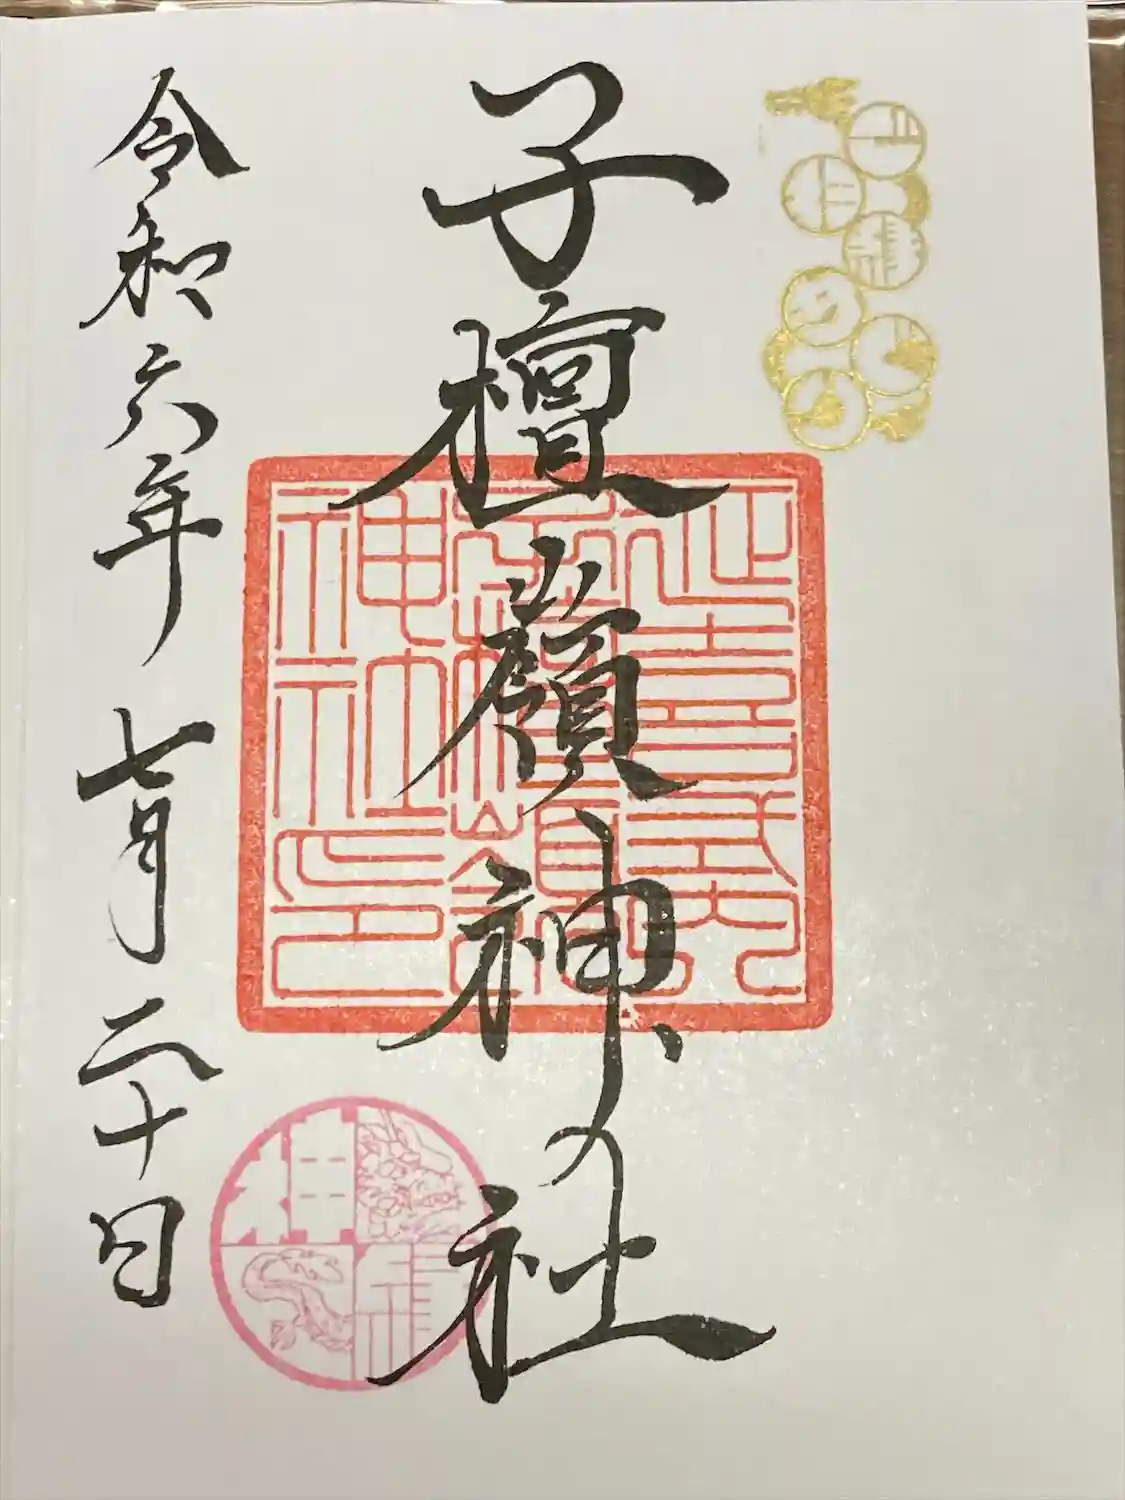 子檀嶺神社
令和六年七月二十日
延喜式内
子檀嶺
神社印